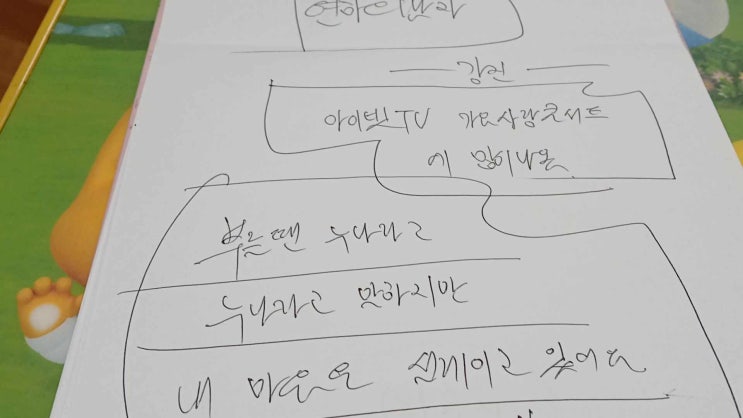 연하의남자
강진
아이넷TV 가요사랑콘서트
에 많이나온
부를땐 누나라고
누나라고 말하지만
내 마음은 설레이고 있어요